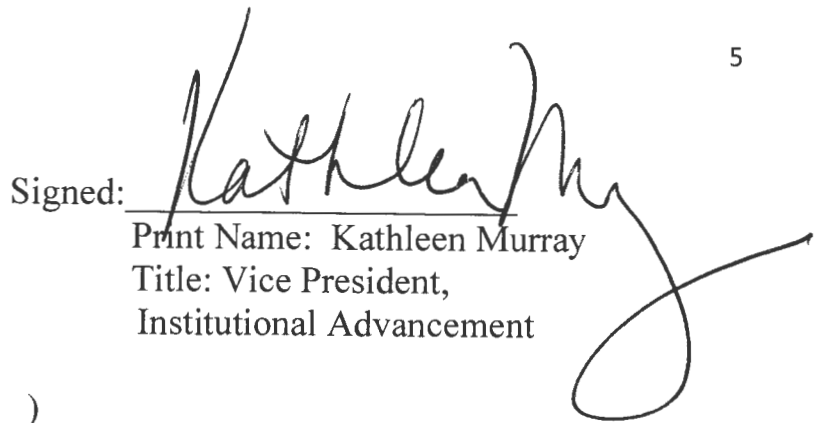 5
Kathleen Murray
Signed:
Print Name: Kathleen Murray
Title: Vice President,
Institutional Advancement
)